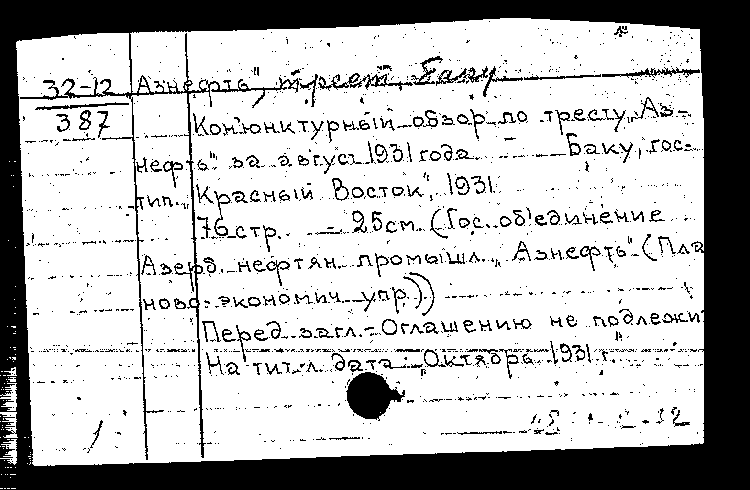 32-12 Азнефть", трест, Баку.
387
Конъюнктурный обзор по тресту „Аз-
нефть" за август 1931 года — Баку, гос-
тип. „Красный Восток", 1931
76 стр. — 25см. (Гос. об'единение
Азерб. нефтян. промышл. „Азнефть" (Пла
ново-экономич. упр.))
Перед загл. - Оглашению не подлежит
На тит. л. дата „Октябрь 1931 г."
1